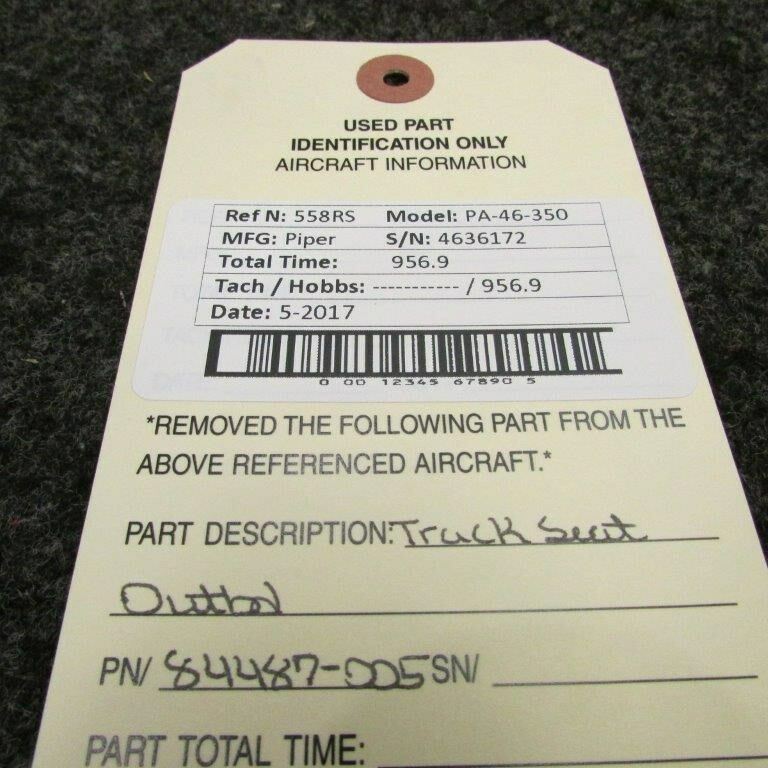 USED PART
IDENTIFICATION ONLY
AIRCRAFT INFORMATION
Ref N: 558RS Model: PA-46-350
MFG: Piper S/N: 4636172
Total Time: 956.9
Tach / Hobbs: ----------- / 956.9
Date: 5-2017
0 00 12345 67890 5
*REMOVED THE FOLLOWING PART FROM THE
ABOVE REFERENCED AIRCRAFT.*
PART DESCRIPTION: Truck Seat
Outbd
PN/ 84487-005 SN/
PART TOTAL TIME: